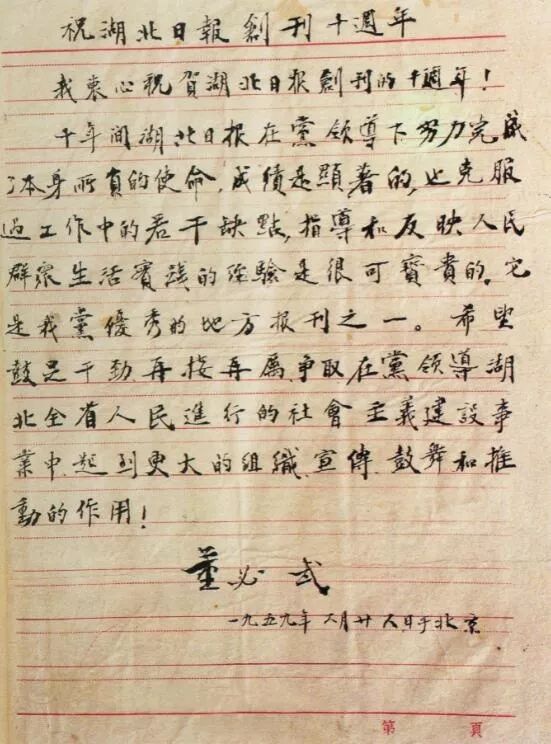 祝湖北日報創刊十週年
我衷心祝賀湖北日报創刊的十週年！
十年间湖北日报在黨领導下努力完成
了本身所負的使命，成績是顯著的，也克服
过工作中的若干缺點，指導和反映人民
群眾生活實踐的经驗是很可寶貴的。它
是我黨優秀的地方报刊之一。希望
鼓足干劲，再接再厲，争取在黨领導湖
北全省人民進行的社會主義建設事
業中，起到更大的组織、宣傳、鼓舞和推
動的作用！
董必武
一九五九年六月廿八日于北京
第 頁